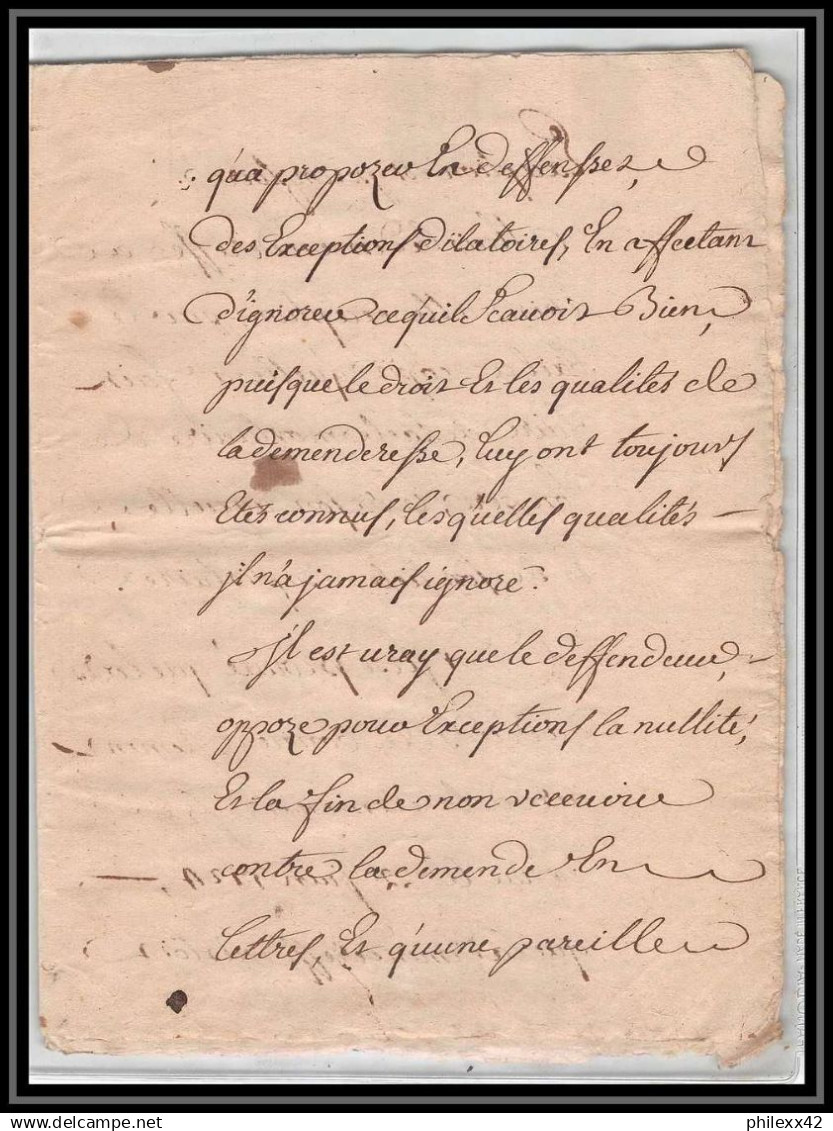 qúa propozer En deffenses,
des Exceptions dilatoires, En affectant
d'ignorer ce quil Scauoit Bien,
puisque le droit Et les qualités de
la demenderesse, luy ont toujours
Etés connus, lésquelles qualités
jl n'a jamais ignoré.
Jl est uray que le deffendeur,
oppoze pour Exceptions la nullité,
Et la fin de non receuoir
contre la demende En
lettres Et qúune pareille
delcampe.net
philexx42